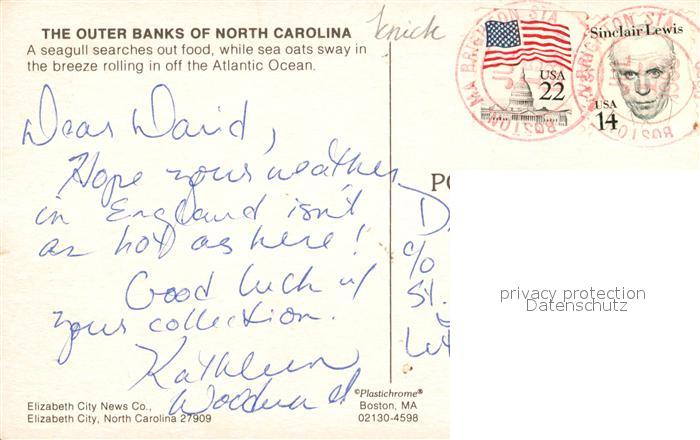 THE OUTER BANKS OF NORTH CAROLINA
A seagull searches out food, while sea oats sway in
the breeze rolling in off the Atlantic Ocean.
Dear David,
Hope your weather
in England isn't
as hot as here!
Good luck w/
your collection.
Kathleen
Woodward
Elizabeth City News Co.,
Elizabeth City, North Carolina 27909
©Plastichrome®
Boston, MA
02130-4598
USA
22
Sinclair Lewis
USA
14
BOSTON MA BRIGHTON STA
BOSTON
BRIGHTON STA
PO
D
c/o
St.
privacy protection
Datenschutz